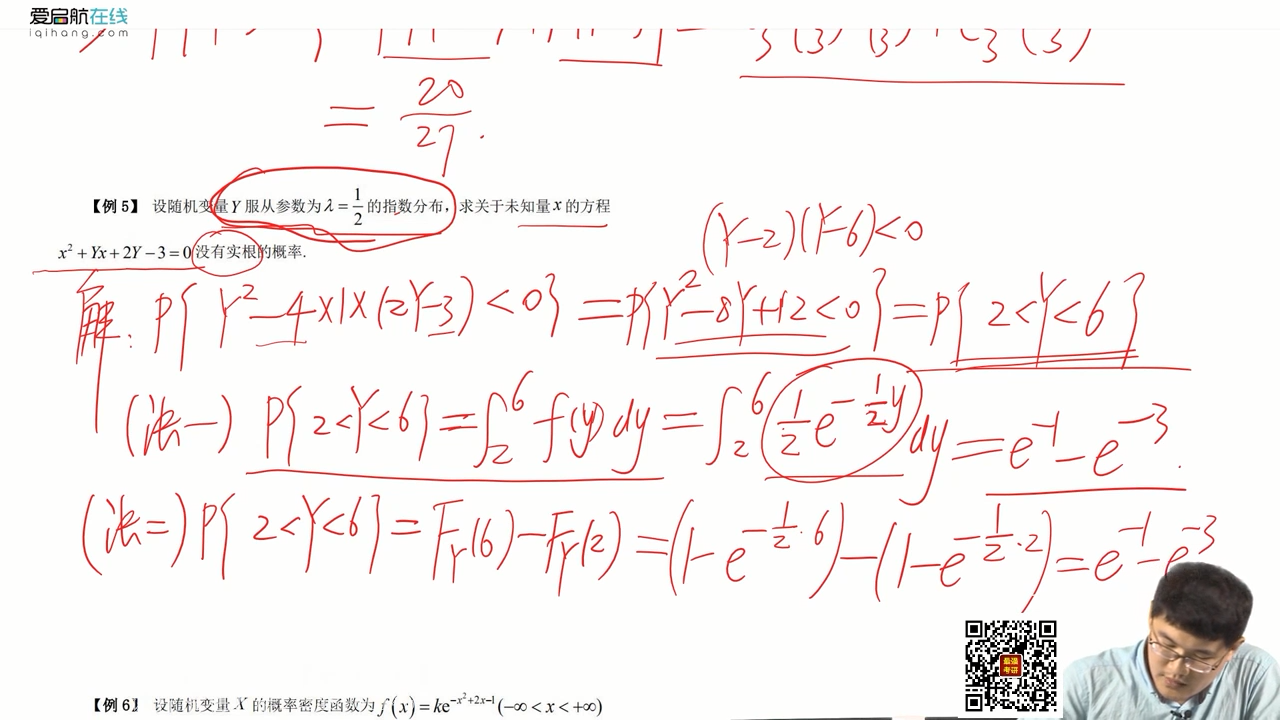 爱启航在线
iqihang.com
= 20/27.
【例 5】 设随机变量 Y 服从参数为 λ = 1/2 的指数分布，求关于未知量 x 的方程
x² + Yx + 2Y − 3 = 0 没有实根的概率.
(Y−2)(Y−6)<0
解: P{ Y²−4×1×(2Y−3) <0} = P{Y²−8Y+12<0} = P{ 2<Y<6}
(法一) P{2<Y<6} = ∫₂⁶ f(y)dy = ∫₂⁶ 1/2 e^{−1/2 y} dy = e^{−1} − e^{−3}.
(法二) P{ 2<Y<6} = F_Y(6) − F_Y(2) = (1−e^{−1/2·6}) − (1−e^{−1/2·2}) = e^{−1} − e^{−3}
最强考研
【例 6】 设随机变量 X 的概率密度函数为 f(x) = ke^{−x²+2x−1} (−∞ < x < +∞)